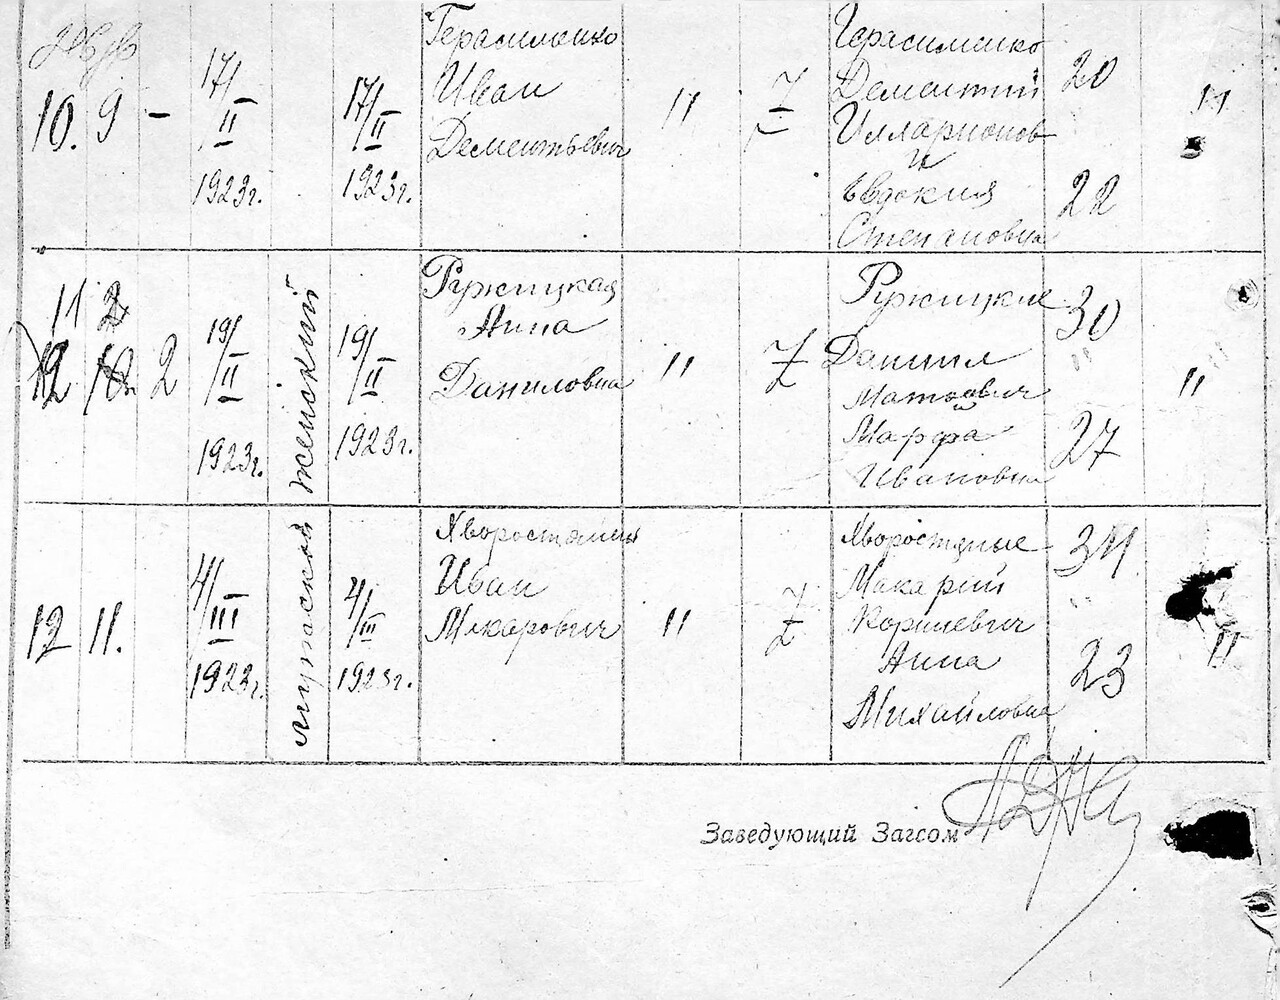 10. 9 -
17/II
1923г.
17/II
1923г.
Герасименко
Иван
Дементьевич
"
7
Герасименко
Дементий
Илларионов
и
Евдокия
Степановна
20
"
22
"
11 2
12 10 2
19/II
1923г.
женский
19/II
1923г.
Ружицкая
Анна
Даниловна
"
7
Ружицкие
Даниил
Матвеевич
и
Марфа
Ивановна
30
"
27
"
12 11.
4/III
1923г.
мужской
4/III
1923г.
Иван
Макарович
"
7
Хворостяные
Макарий
Корнеевич
Анна
Михайловна
34
"
23
"
Заведующий Загсом